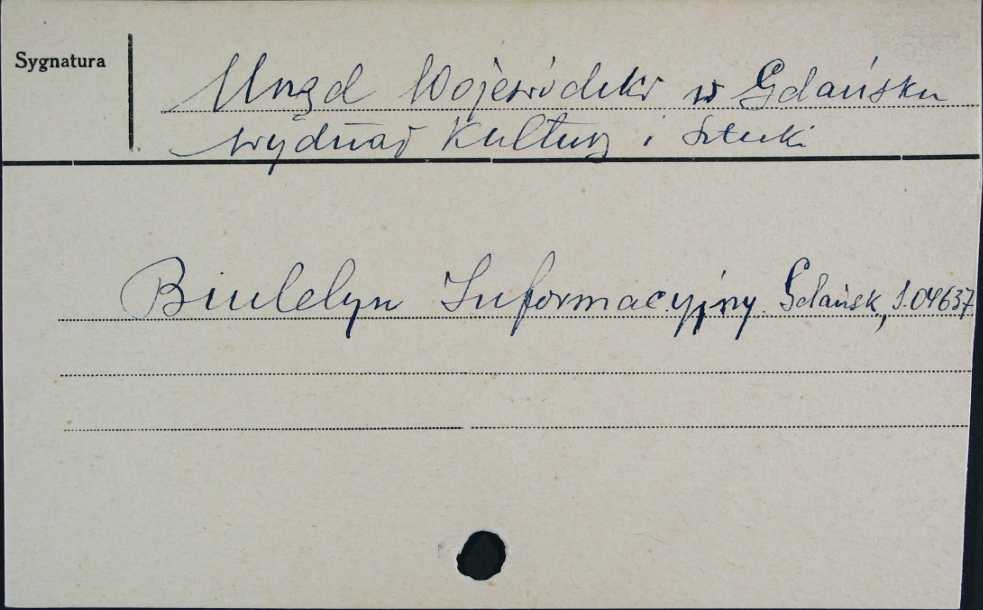 Sygnatura
Urząd Wojewódzki w Gdańsku
Wydział Kultury i Sztuki
Biuletyn Informacyjny. Gdańsk, S.04637